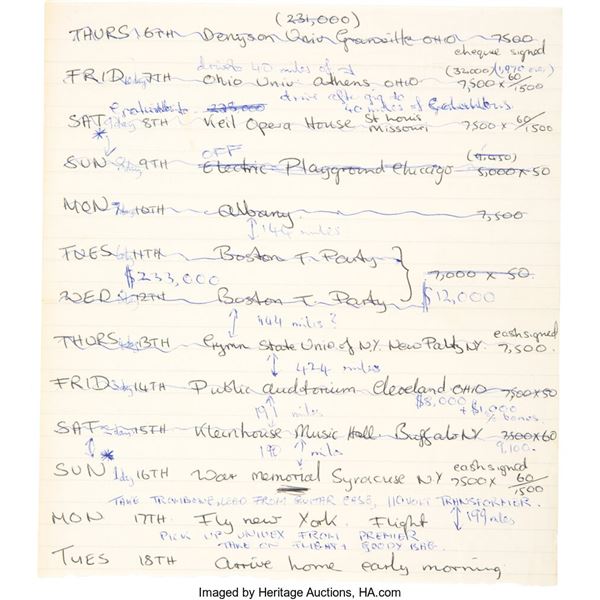 (231,000)
THURS 6TH Denyson Univ Granville OHIO 7500
cheque signed
drive 40 miles of
(32,000)
FRID 7TH Ohio Univ. Athens OHIO 7,500 x 60/1500
drive after gig to
40 miles of
SAT 8TH Keil Opera House St Louis Missouri 7500 x 60/1500
OFF
SUN 9TH Electric Playground Chicago 5,000 x 50
MON 10TH Albany. 7,500
144 miles
TUES 11TH Boston T. Party
$233,000
7,000 x 50
$12,000
WED 12TH Boston T. Party
444 miles?
cash signed
THURS 13TH State Univ. of N.Y. New Paltz NY. 7,500.
424 miles
FRID 14TH Public auditorium Cleveland OHIO 7,500 x 50
$8,000 + $1,000 bonus
191 miles
SAT 15TH Kleinhouse Music Hall Buffalo NY 7500 x 60
9,100.
190 miles
SUN 16TH War memorial Syracuse N.Y. cash signed 7500 x 60/1500
TAKE TROMBONE LEAD FROM GUITAR CASE, 110 VOLT TRANSFORMER.
199 miles
MON 17TH. Fly new York. Flight
PICK UP UNIVOX FROM PREMIER
TAKE ON FLIGHT + GOODY BAG.
TUES 18TH arrive home early morning.
Imaged by Heritage Auctions, HA.com